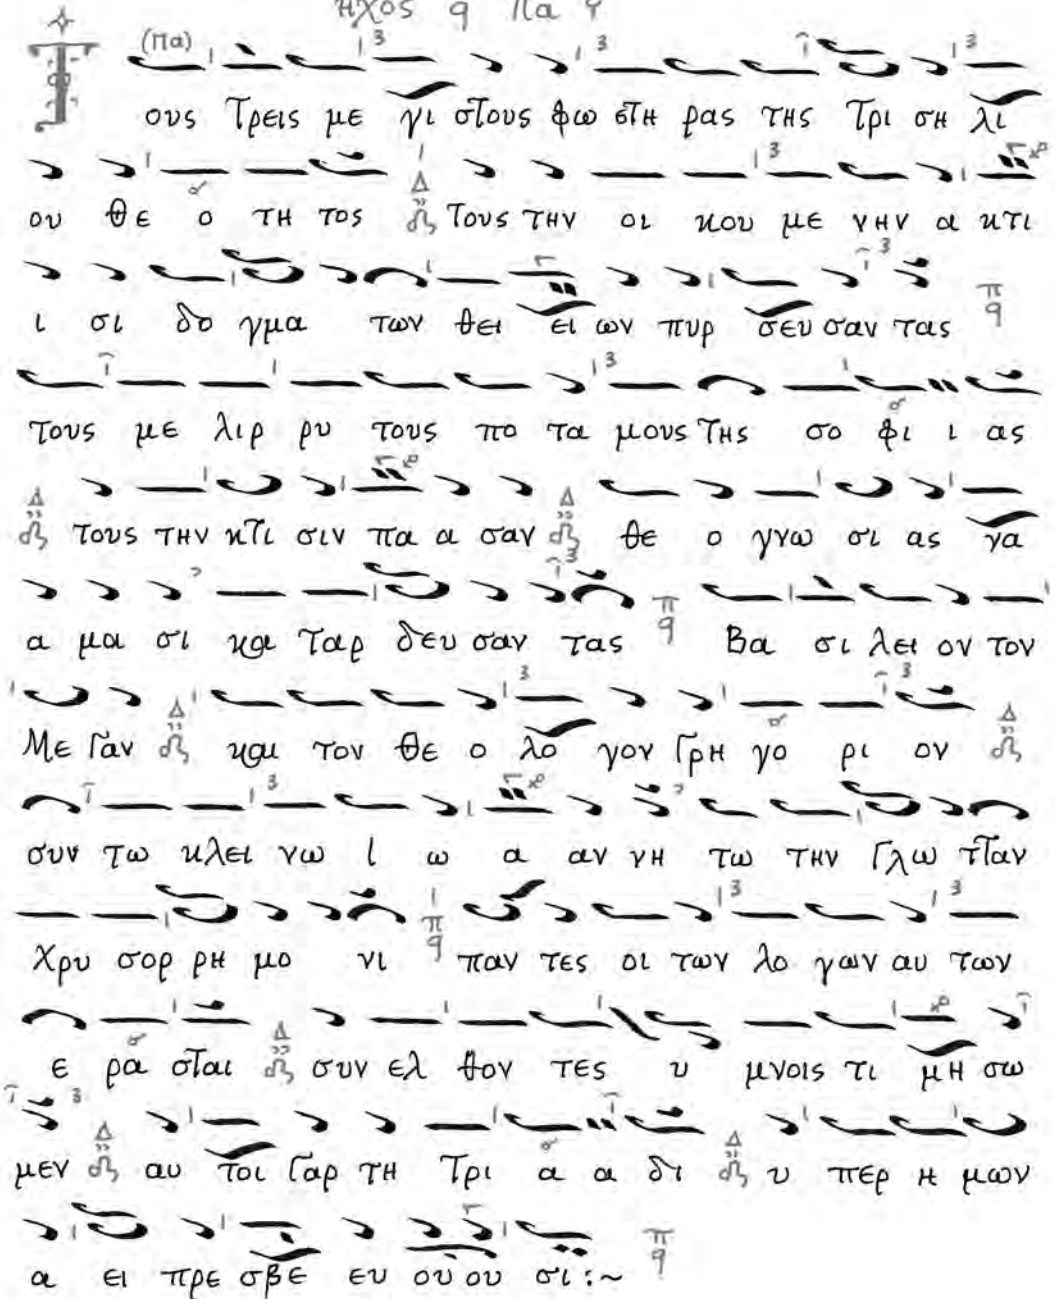 ηχος q Πα
(Πα)
Τ ους Τρεις με γι στους φω στη ρας της Τρι ση λι
ου θε ο τη τος Δ Τους την οι κου με νην α κτι
ι σι δο γμα των θει ει ων πυρ σευ σαν τας π q
τους με λιρ ρυ τους πο τα μους της σο φι ι ας
Δ τους την κτι σιν πα α σαν Δ θε ο γνω σι ας να
α μα σι και ταρ δευ σαν τας π q Βα σι λει ον τον
Με γαν Δ και τον θε ο λο γον Γρη γο ρι ον Δ
συν τω κλει νω Ι ω α αν νη τω την Γλω τταν
Χρυ σορ ρη μο νι π q παν τες οι των λο γων αυ των
ε ρα σται Δ συν ελ θον τες υ μνοις τι μη σω
μεν Δ αυ τοι Γαρ τη Τρι α α δι Δ υ περ η μων
α ει πρε σβε ευ ου ου σι :~ π q